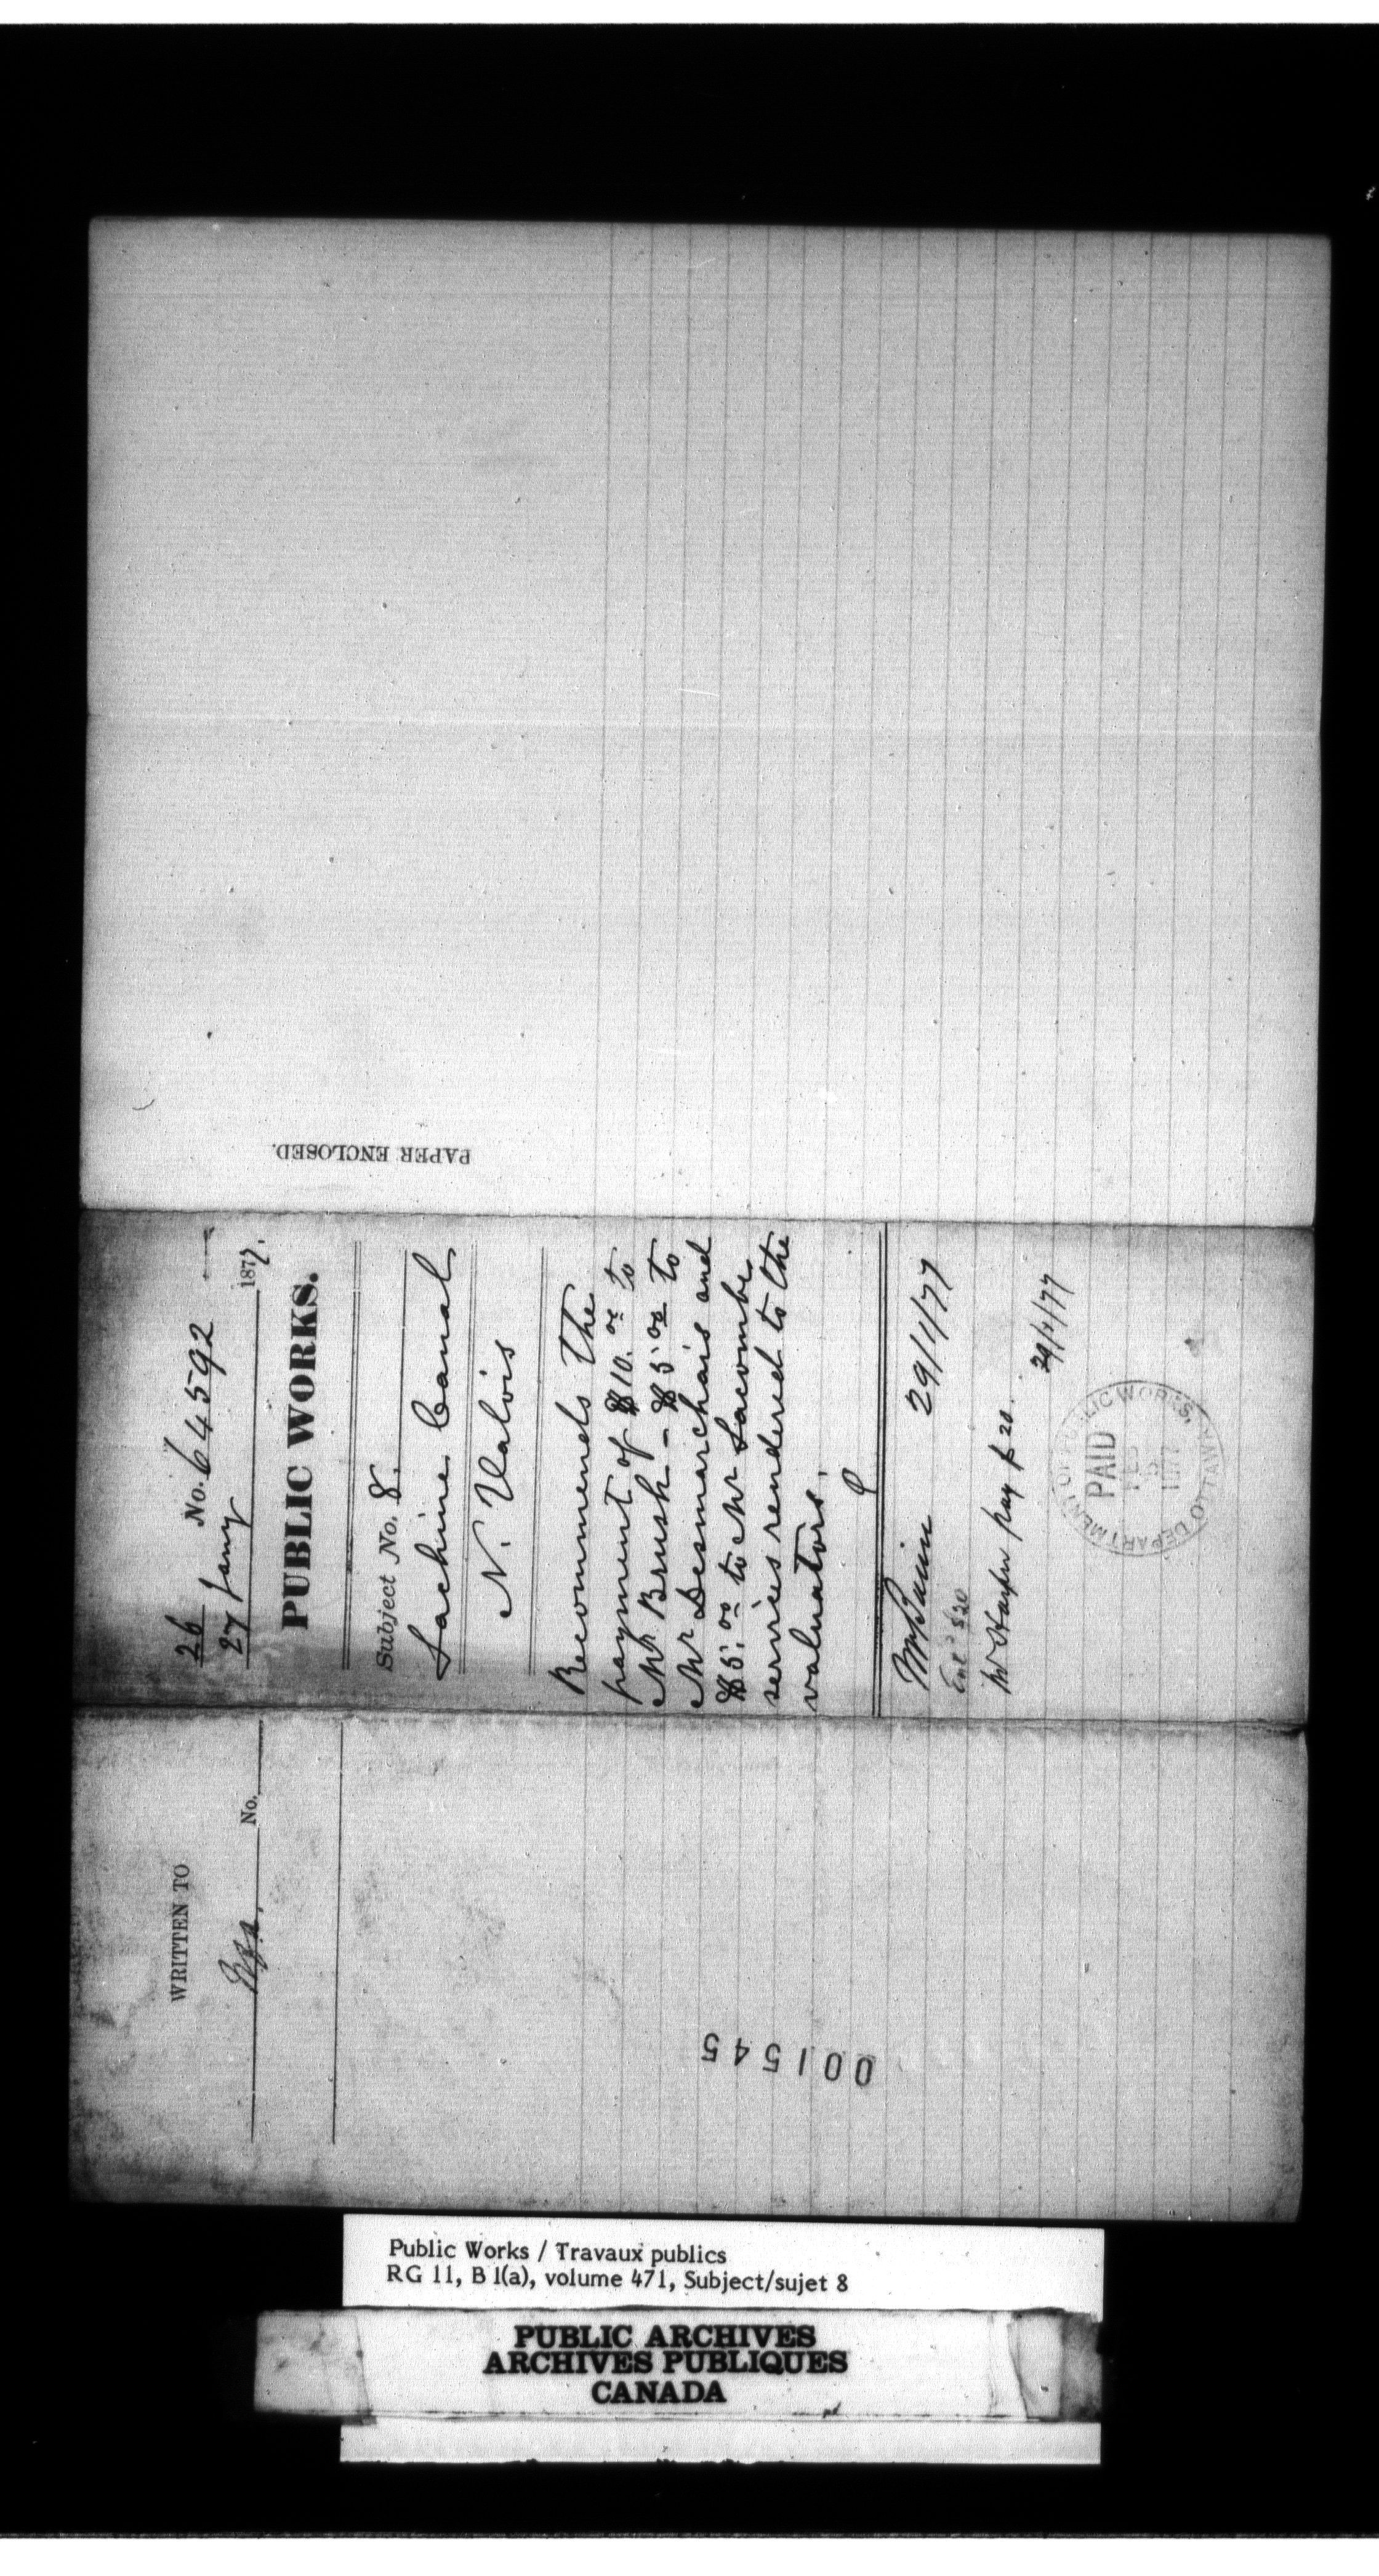 26 No. 64592
27 Jany 1877.
PUBLIC WORKS.
Subject No. 8.
Lachine Canal
N. Valois
Recommends the
payment of $10.00 to
Mr Brush - $5.00 to
Mr Desmarchais and
$5.00 to Mr Lacombe
services rendered to the
valuators.
29/1/77
$20
pay $20.
29/1/77
DEPARTMENT OF PUBLIC WORKS, OTTAWA
PAID
FEB
5
1877
PAPER ENCLOSED.
WRITTEN TO
No.
001545
Public Works / Travaux publics
RG 11, B 1(a), volume 471, Subject/sujet 8
PUBLIC ARCHIVES
ARCHIVES PUBLIQUES
CANADA